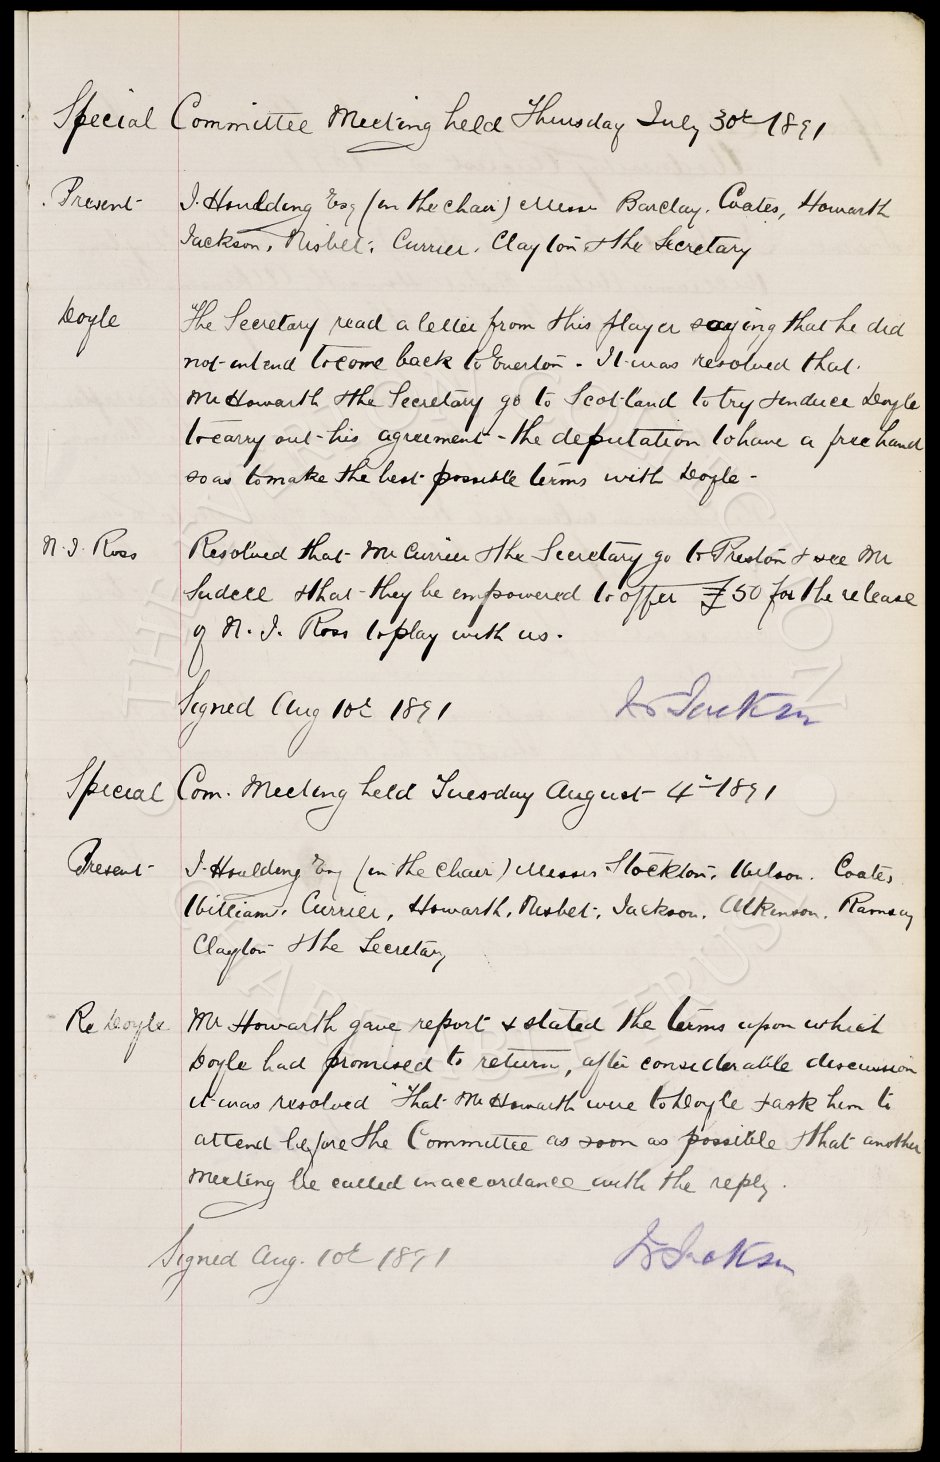 Special Committee Meeting held Thursday July 30th 1891
Present J. Houlding Esq (in the chair) Messrs Barclay, Coates, Howarth
Jackson, Nisbet, Currier, Clayton & the Secretary
Doyle The Secretary read a letter from this player saying that he did
not intend to come back to Everton - It was resolved that
Mr Howarth & the Secretary go to Scotland to try & induce Doyle
to carry out his agreement - the deputation to have a free hand
so as to make the best possible terms with Doyle -
N. J. Ross Resolved that Mr Currier & the Secretary go to Preston & see Mr
Sudell & that they be empowered to offer £50 for the release
of N. J. Ross to play with us.
Signed Aug 10th 1891 Jackson
Special Com. Meeting held Tuesday August 4th 1891
Present J. Houlding Esq (in the chair) Messrs Stockton, Wilson, Coates
Williams, Currier, Howarth, Nisbet, Jackson, Atkinson, Ramsay
Clayton & the Secretary
Re Doyle Mr Howarth gave report & stated the terms upon which
Doyle had promised to return, after considerable discussion
it was resolved "That Mr Howarth wire to Doyle & ask him to
attend before the Committee as soon as possible & that another
meeting be called in accordance with the reply.
Signed Aug. 10th 1891 Jackson